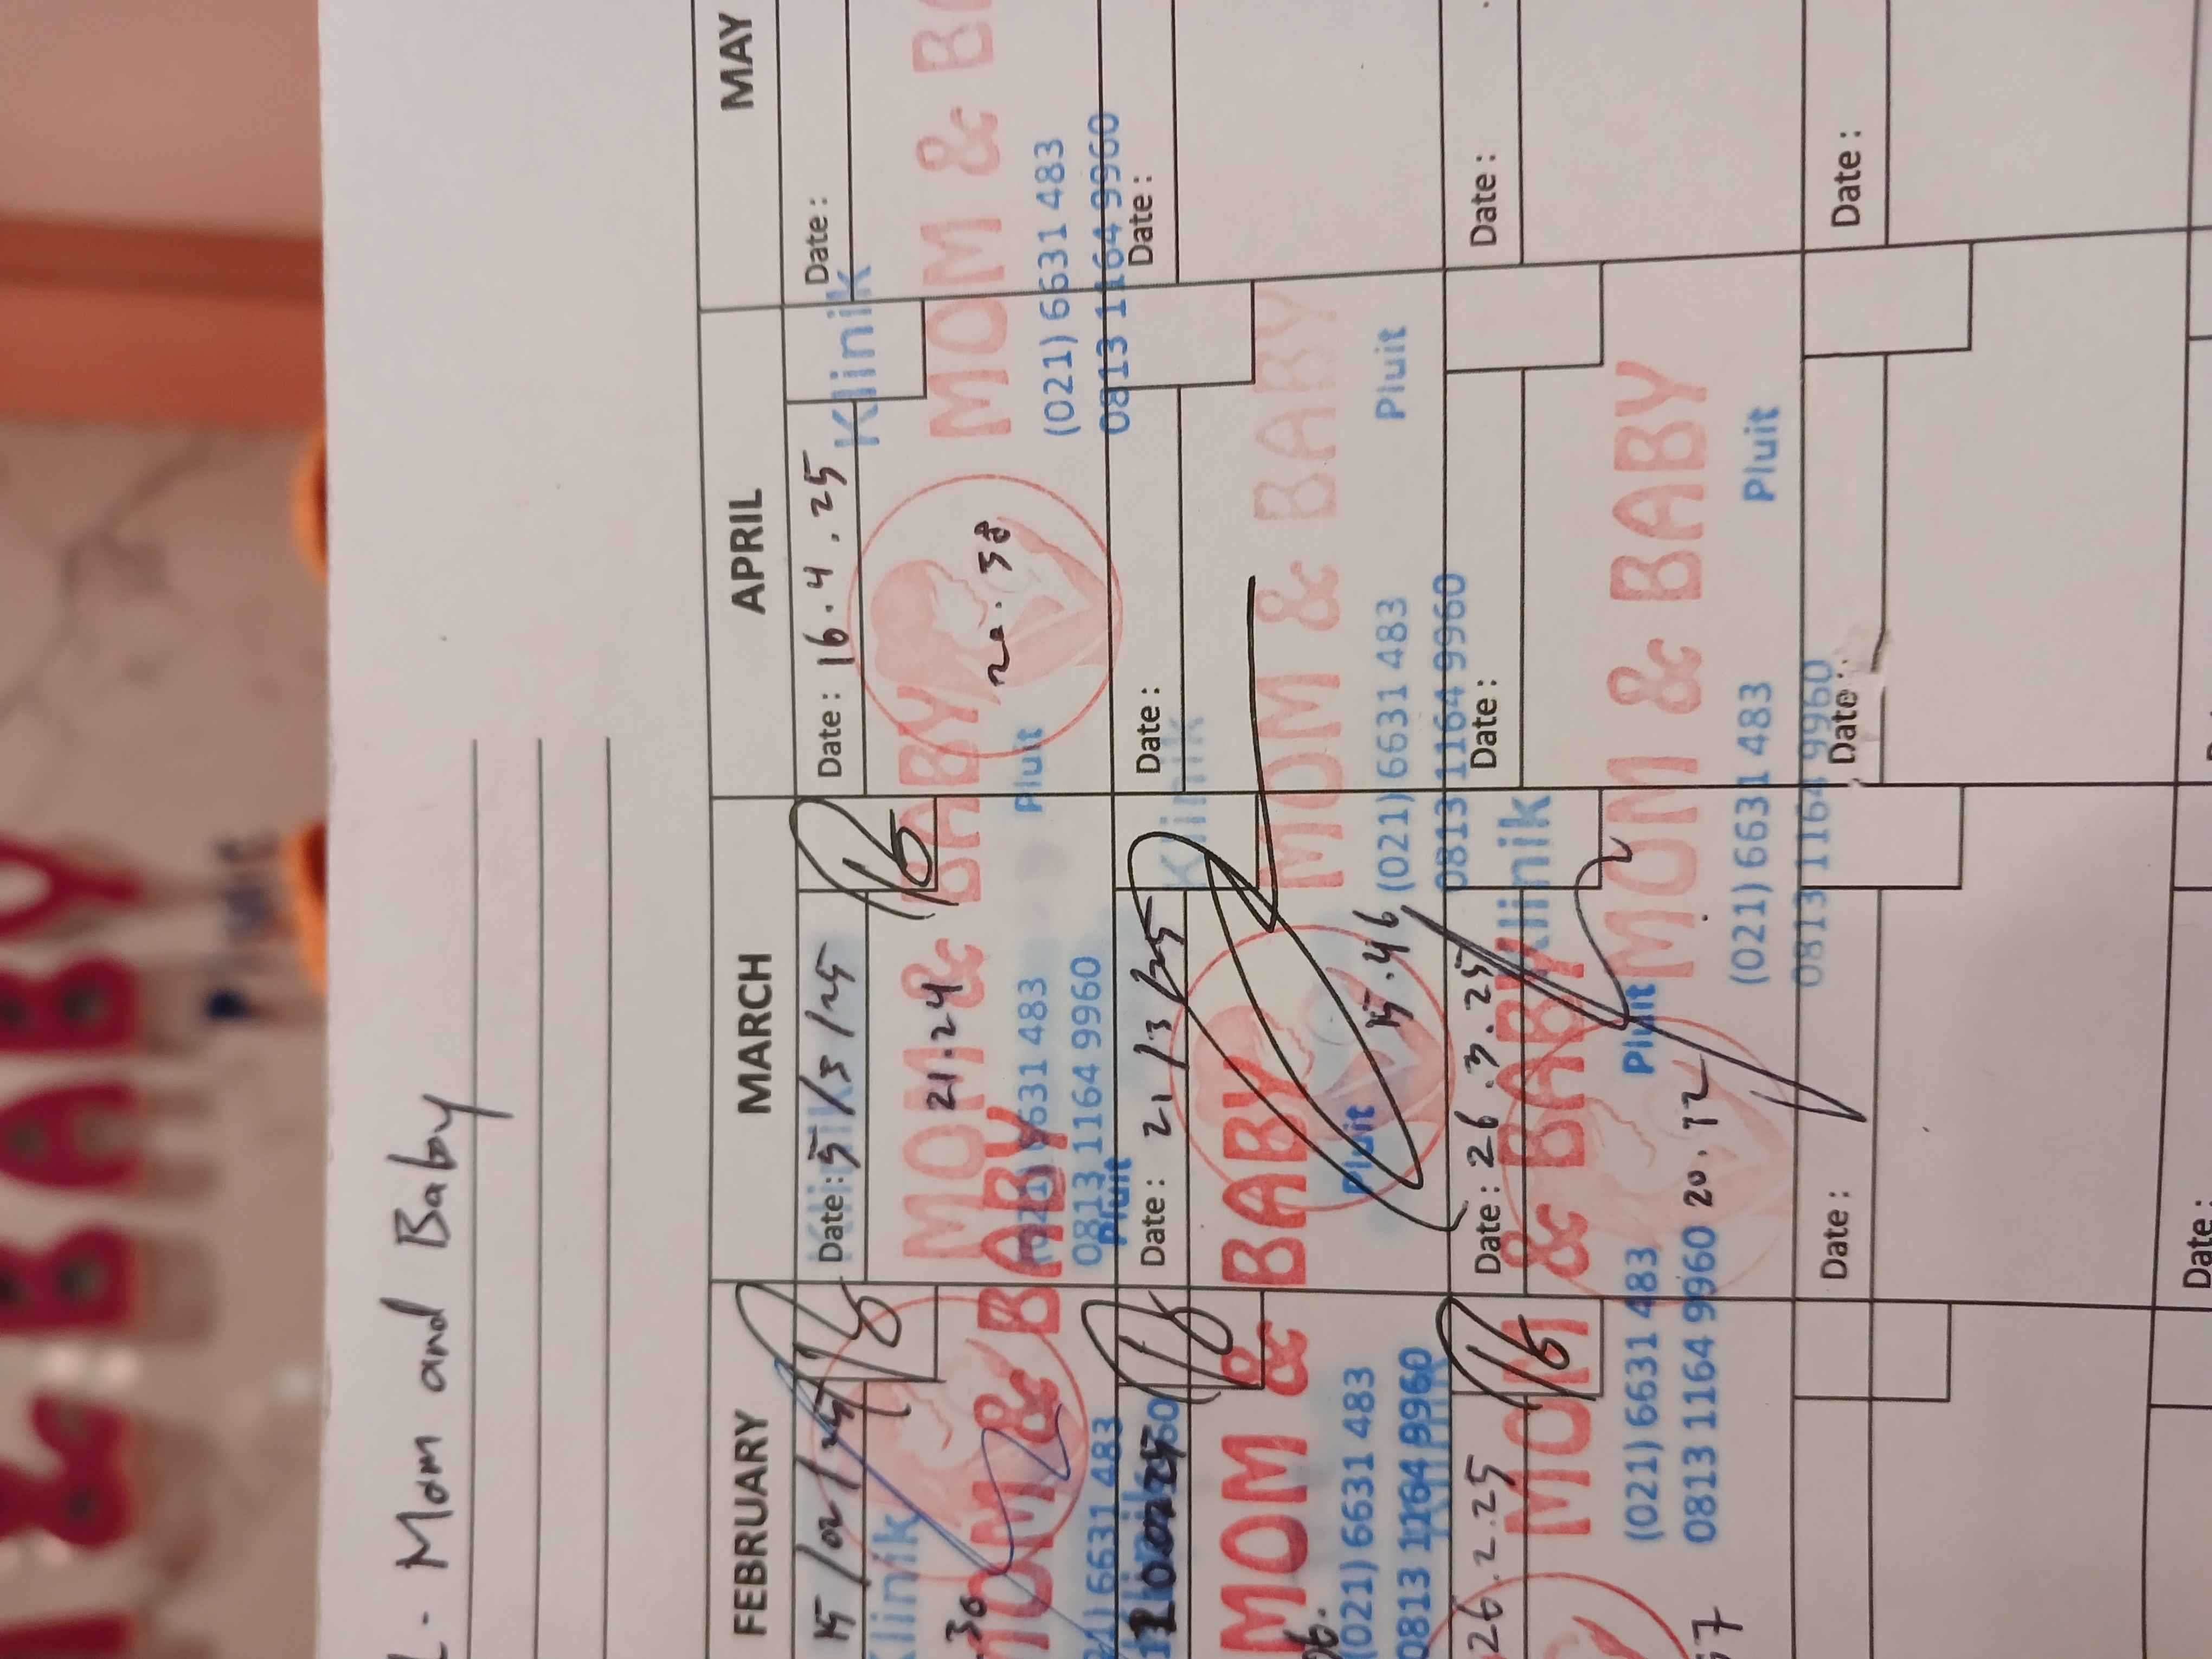 - Mom and Baby
FEBRUARY MARCH APRIL MAY
15/02/25 Date: 5/3/25 Date: 16.4.25 Date:
Klinik
MOM & BABY
Pluit
(021) 6631 483
0813 1164 9960
30
21.24
20.38
Klinik
MOM & B
(021) 6631 483
0813 1164 9960
Date: 21/3/25 Date: Date:
MOM & BABY
Pluit
(021) 6631 483
0813 1164 9960
15.46
Klinik
MOM & BABY
Pluit
(021) 6631 483
0813 1164 9960
26.2.25 Date: 26.3.25 Date: Date:
MOM & BABY
Pluit
(021) 6631 483
0813 1164 9960
57
20.12
Klinik
MOM & BABY
Pluit
(021) 6631 483
0813 1164 9960
Date: Date: Date:
Date:
& BABY